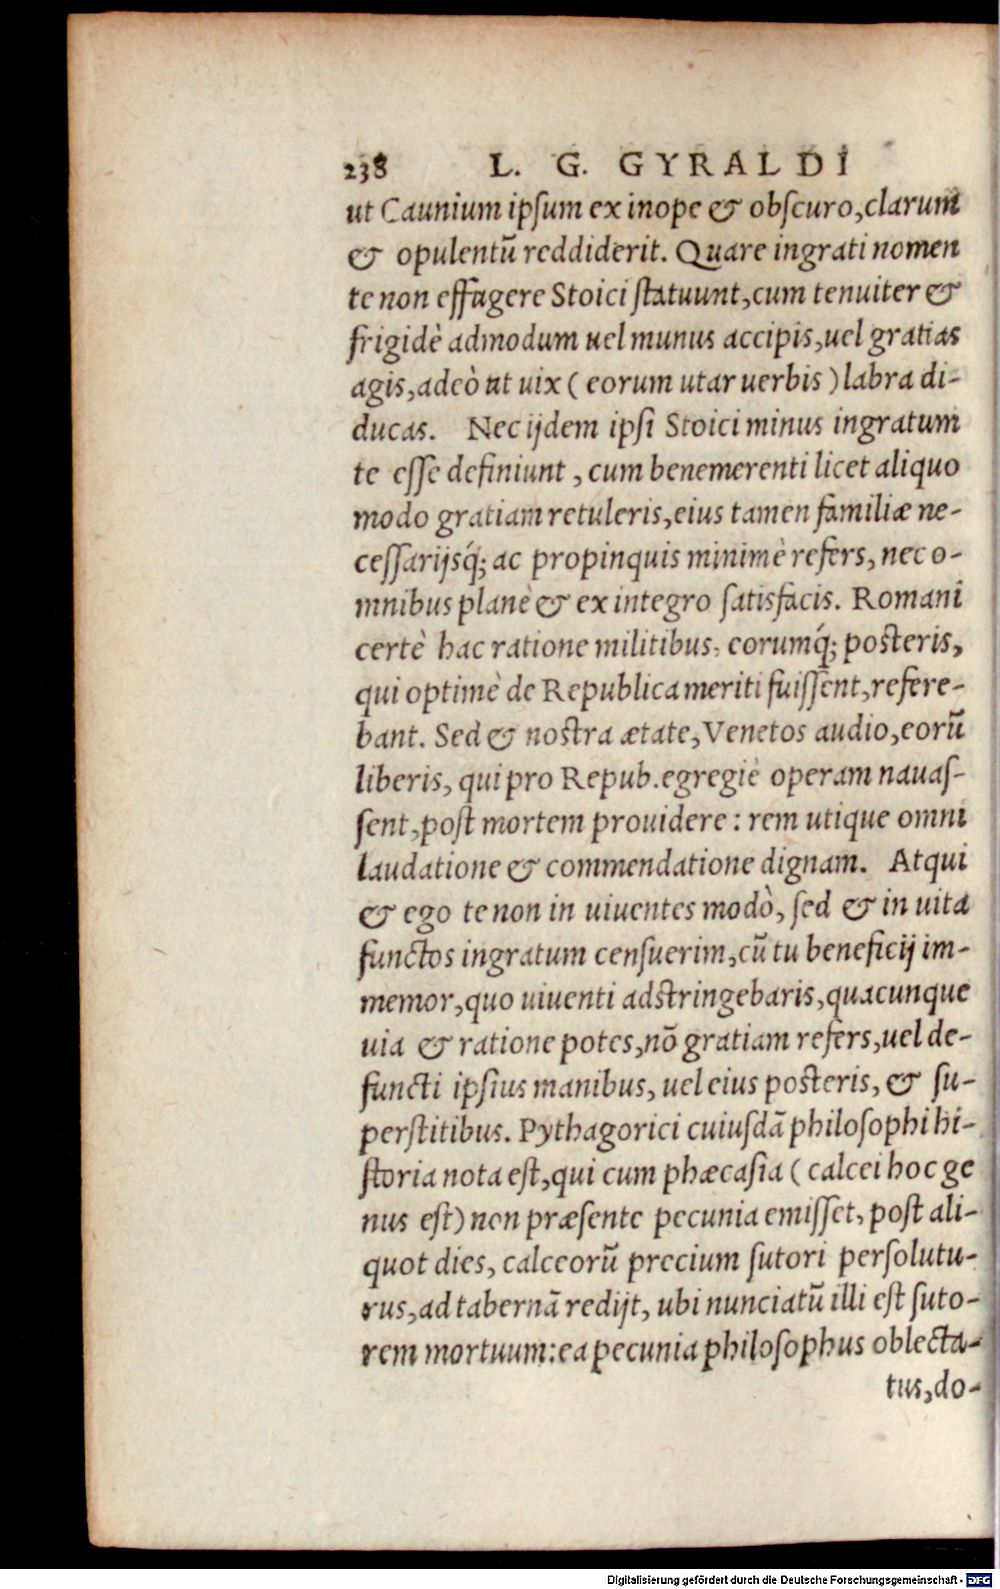 238 L. G. GYRALDI
ut Caunium ipſum ex inope & obſcuro, clarum
& opulentũ reddiderit. Quare ingrati nomen
te non effugere Stoici ſtatuunt, cum tenuiter &
frigidè admodum uel munus accipis, uel gratias
agis, adeò ut uix ( eorum utar uerbis ) labra di-
ducas. Nec ijdem ipſi Stoici minus ingratum
te eſſe definiunt , cum benemerenti licet aliquo
modo gratiam retuleris, eius tamen familiæ ne-
ceſſarijsq́; ac propinquis minimè refers, nec o-
mnibus planè & ex integro ſatisfacis. Romani
certè hac ratione militibus, eorumq́; poſteris,
qui optimè de Republica meriti fuiſſent, refere-
bant. Sed & noſtra ætate, Venetos audio, eorũ
liberis, qui pro Repub. egregiè operam nauaſ-
ſent, poſt mortem prouidere : rem utique omni
laudatione & commendatione dignam. Atqui
& ego te non in uiuentes modò, ſed & in uita
functos ingratum cenſuerim, cũ tu beneficij im-
memor, quo uiuenti adſtringebaris, quacunque
uia & ratione potes, nõ gratiam refers, uel de-
functi ipſius manibus, uel eius poſteris, & ſu-
perſtitibus. Pythagorici cuiuſdã philoſophi hi-
ſtoria nota eſt, qui cum phæcaſia ( calcei hoc ge
nus eſt) non præſente pecunia emiſſet, poſt ali-
quot dies, calceorũ precium ſutori perſolutu-
rus, ad tabernã redijt, ubi nunciatũ illi eſt ſuto-
rem mortuum: ea pecunia philoſophus oblecta-
tus, do-
Digitalisierung gefördert durch die Deutsche Forschungsgemeinschaft - DFG